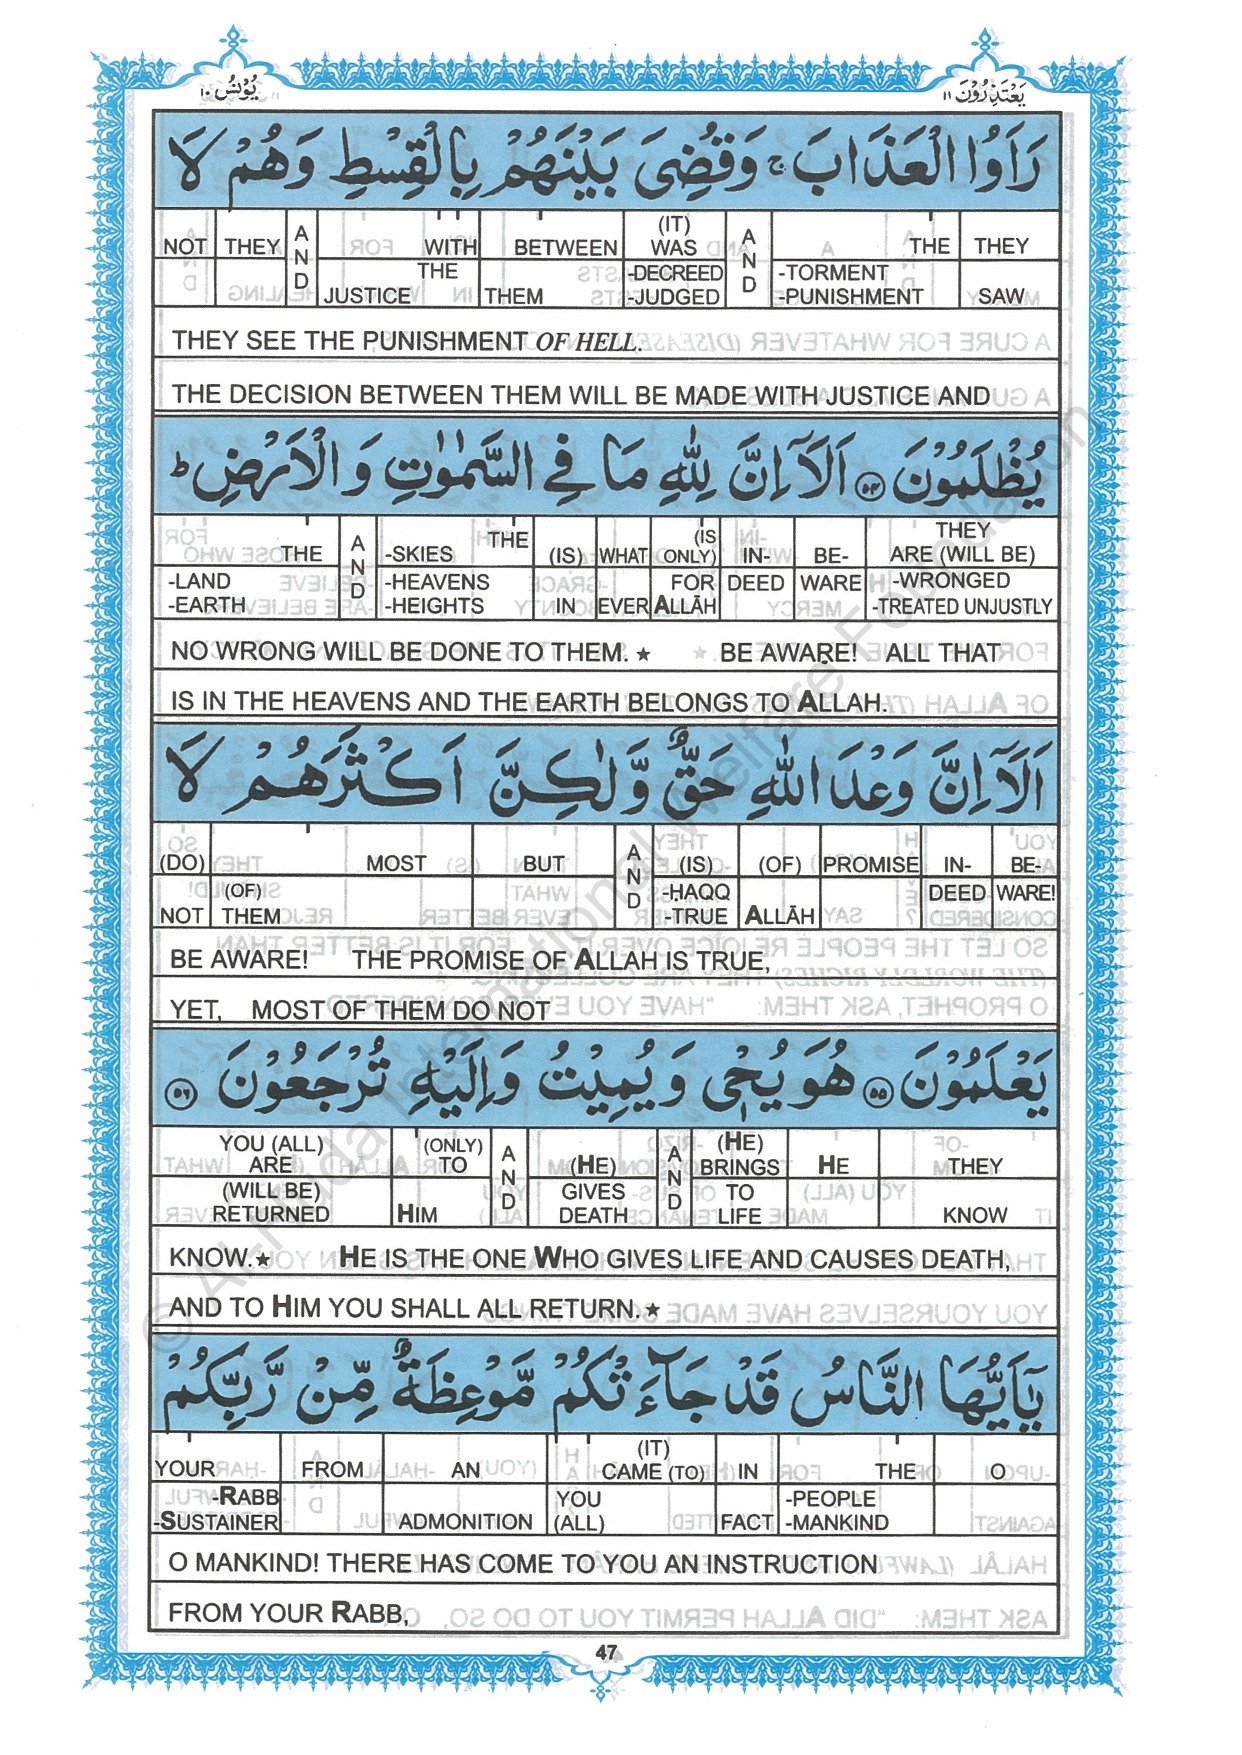 يَعْتَذِرُوْنَ ١١ يُوْنُسُ ١٠
رَاَوُا الْعَذَابَ ۚ وَقُضِىَ بَيْنَهُمْ بِالْقِسْطِ وَهُمْ لَا
NOT THEY AND WITH BETWEEN (IT) WAS AND THE THEY
THE JUSTICE THEM -DECREED -JUDGED -TORMENT -PUNISHMENT SAW
THEY SEE THE PUNISHMENT OF HELL.
THE DECISION BETWEEN THEM WILL BE MADE WITH JUSTICE AND
يُظْلَمُوْنَ ۝٥٤ اَلَآ اِنَّ لِلّٰهِ مَا فِي السَّمٰوٰتِ وَ الْاَرْضِ ؕ
THE AND -SKIES THE (IS) WHAT (IS ONLY) IN- BE- THEY ARE (WILL BE)
-LAND -EARTH -HEAVENS -HEIGHTS IN EVER FOR ALLĀH DEED WARE -WRONGED -TREATED UNJUSTLY
NO WRONG WILL BE DONE TO THEM.★ BE AWARE! ALL THAT
IS IN THE HEAVENS AND THE EARTH BELONGS TO ALLAH.
اَلَآ اِنَّ وَعْدَ اللّٰهِ حَقٌّ وَّلٰكِنَّ اَكْثَرَهُمْ لَا
(DO) MOST BUT AND (IS) (OF) PROMISE IN- BE-
NOT (OF) THEM -ḤAQQ -TRUE ALLĀH DEED WARE!
BE AWARE! THE PROMISE OF ALLAH IS TRUE,
YET, MOST OF THEM DO NOT
يَعْلَمُوْنَ ۝٥٥ هُوَ يُحْيٖ وَيُمِيْتُ وَاِلَيْهِ تُرْجَعُوْنَ ۝٥٦
YOU (ALL) ARE (ONLY) TO AND (HE) AND (HE) BRINGS HE THEY
(WILL BE) RETURNED HIM GIVES DEATH TO LIFE KNOW
KNOW.★ HE IS THE ONE WHO GIVES LIFE AND CAUSES DEATH,
AND TO HIM YOU SHALL ALL RETURN.★
يٰۤاَيُّهَا النَّاسُ قَدْ جَآءَتْكُمْ مَّوْعِظَةٌ مِّنْ رَّبِّكُمْ
YOUR FROM AN (IT) CAME (TO) IN THE O
-RABB -SUSTAINER ADMONITION YOU (ALL) FACT -PEOPLE -MANKIND
O MANKIND! THERE HAS COME TO YOU AN INSTRUCTION
FROM YOUR RABB,
47
© Al-Huda International Welfare Foundation